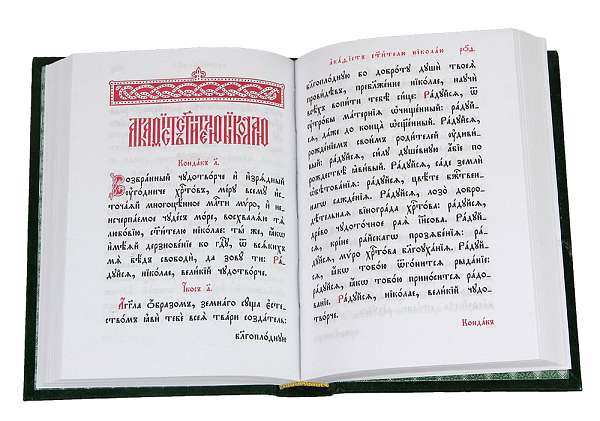 А҆ка́ѳїстъ ст҃и́телю нїкола́ю
Конда́къ а҃.
Возбра́нный чꙋдотво́рче и҆ и҆зрѧ́дный
ᲂу҆го́дниче хрⷭ҇то́въ, мі́рꙋ всемꙋ̀ и҆с-
точа́ѧй многоцѣ́нное млⷭ҇ти мѵ́ро, и҆ не-
и҆счерпа́емое чꙋде́съ мо́ре, восхвалѧ́ю тѧ̀
любо́вїю, ст҃и́телю нїко́лае: ты́ же, ꙗ҆́кѡ
и҆мѣ́ѧй дерзнове́нїе ко гдⷭ҇ꙋ, ѿ всѧ́кихъ
мѧ̀ бѣ́дъ свободѝ, да зовꙋ̀ тѝ: Ра́-
дꙋйсѧ, нїко́лае, вели́кїй чꙋдотво́рче.
І҆́косъ а҃.
А҆́гг҃ла ѡ҆́бразомъ, земна́го сꙋ́ща є҆сте-
ство́мъ ꙗ҆вѝ тебѐ всеѧ̀ тва́ри созда́тель:
бл҃гопло́днꙋю
А҆ка́ѳїстъ ст҃и́телю нїкола́ю
бл҃гопло́днꙋю бо добро́тꙋ дꙋшѝ твоеѧ̀
прови́дѣвъ, пребл҃же́нне нїко́лае, наꙋчѝ
всѣ́хъ вопи́ти тебѣ̀ си́це: Ра́дꙋйсѧ, ѿ
ᲂу҆тро́бы ма́терни ѡ҆чи́щенный: ра́дꙋй-
сѧ, да́же до конца̀ ѡ҆сщ҃е́нный: ра́дꙋйсѧ,
рожде́нїемъ свои́мъ роди́телей ᲂу҆диви́-
вый: ра́дꙋйсѧ, си́лꙋ дꙋше́внꙋю а҆́бїе по
рождествѣ̀ ꙗ҆ви́вый. Ра́дꙋйсѧ, са́де землѝ
ѡ҆бѣтова́нїѧ: ра́дꙋйсѧ, цвѣ́те бж҃е́ствен-
нагѡ сажде́нїѧ. Ра́дꙋйсѧ, лозо̀ добро-
дѣ́тельнаѧ вїногра́да хрⷭ҇то́ва: ра́дꙋйсѧ,
дре́во чꙋдото́чное раѧ̀ і҆и҃сова. Ра́дꙋй-
сѧ, кри́не ра́йскагѡ прозѧбе́нїѧ: ра́дꙋй-
сѧ, мѵ́ро хрⷭ҇то́ва бл҃гоꙋха́нїѧ. Ра́дꙋйсѧ,
ꙗ҆́кѡ тобо́ю ѿго́нитсѧ рыда́нїе:
ра́дꙋйсѧ, ꙗ҆́кѡ тобо́ю прино́ситсѧ ра́до-
ванїе. Ра́дꙋйсѧ, нїко́лае, вели́кїй чꙋдо-
тво́рче.
Конда́къ